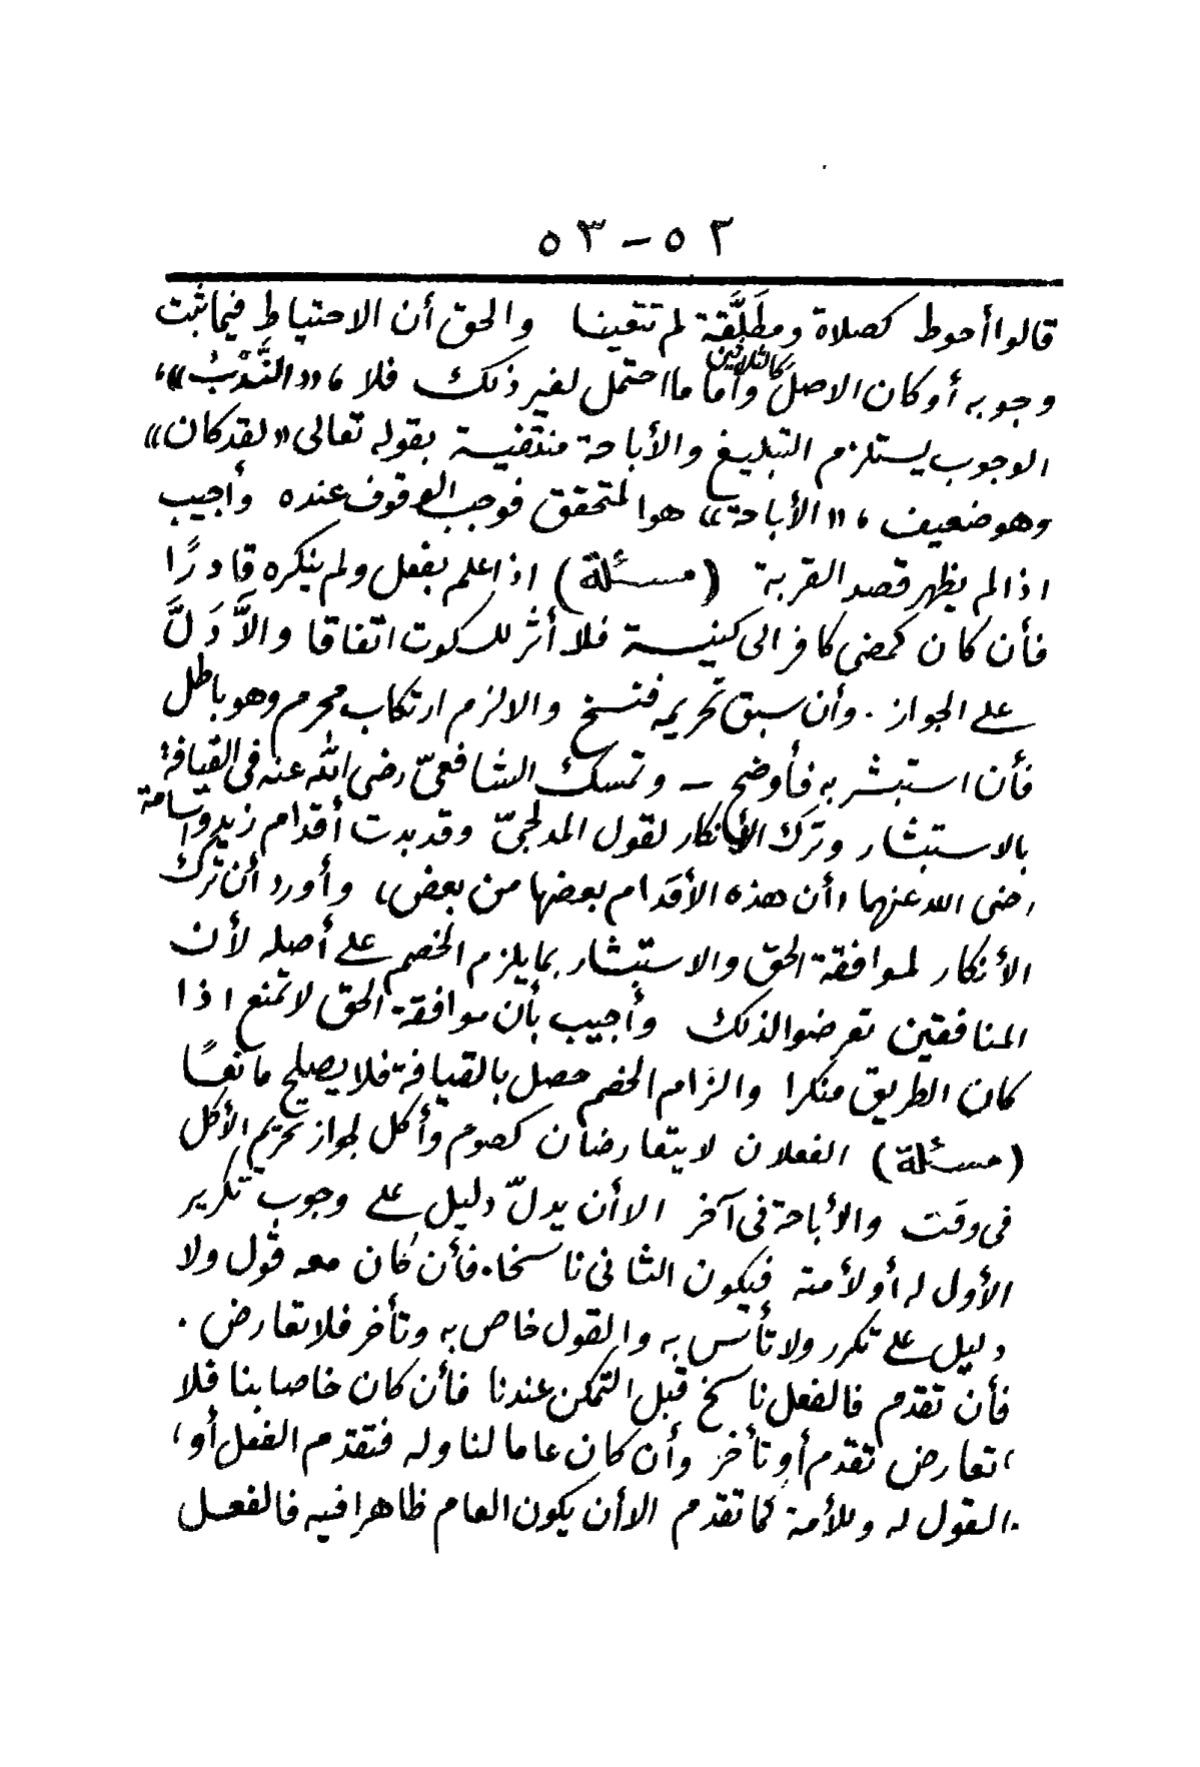 ٥٢-٥٣
قالوا أحوط كصلاة ومطَلَّقة لم تتعينا والحق أن الاحتياط فيما ثبت
وجوبه أو كان الاصل كالثلاثين وأما ما احتمل لغير ذلك فلا ، «النَّدْبُ»،
الوجوب يستلزم التبليغ والأباحة منتفية بقوله تعالى «لقد كان»
وهو ضعيف ، «الأباحة» هو المتحقق فوجب الوقوف عنده وأجيب
اذا لم يظهر قصد القربة (مسئلة) اذا علم بفعل ولم ينكره قادرًا
فأن كان كمضي كافر الى كنيسة فلا أثر للسكوت اتفاقا والاَّ دَلَّ
على الجواز . وأن سبق تحريمه فنسخ والا لزم ارتكاب محرم وهو باطل
فأن استبشر به فأوضح — وتمسك الشافعىّ رضى الله عنه فى القيافة
بالاستبشار وترك الأنكار لقول المدلجىّ وقد بدت أقدام زيد وأسامة
رضى الله عنهما «أن هذه الأقدام بعضها من بعض» وأورد أن ترك
الأنكار لموافقة الحق والاستبشار بما يلزم الخصم على أصله لأن
المنافقين تعرضوا لذلك وأجيب بأن موافقة الحق لا تمنع اذا
كان الطريق منكرا والزام الخصم حصل بالقيافة فلا يصلح مانعًا
(مسئلة) الفعلان لا يتعارضان كصوم وأكل لجواز تحريم الأكل
فى وقت والأباحة فى آخر الا أن يدلّ دليل على وجوب تكرير
الأول له أو لأمته فيكون الثانى ناسخا. فأن كان معه قول ولا
دليل على تكرر ولا تأسٍ به والقول خاص به وتأخر فلا تعارض .
فأن تقدم فالفعل ناسخ قبل التمكن عندنا فأن كان خاصا بنا فلا
تعارض تقدم أو تأخر وأن كان عاما لنا وله فتقدم الفعل أو
القول له وللأمة كما تقدم الا أن يكون العام ظاهرا فيه فالفعل